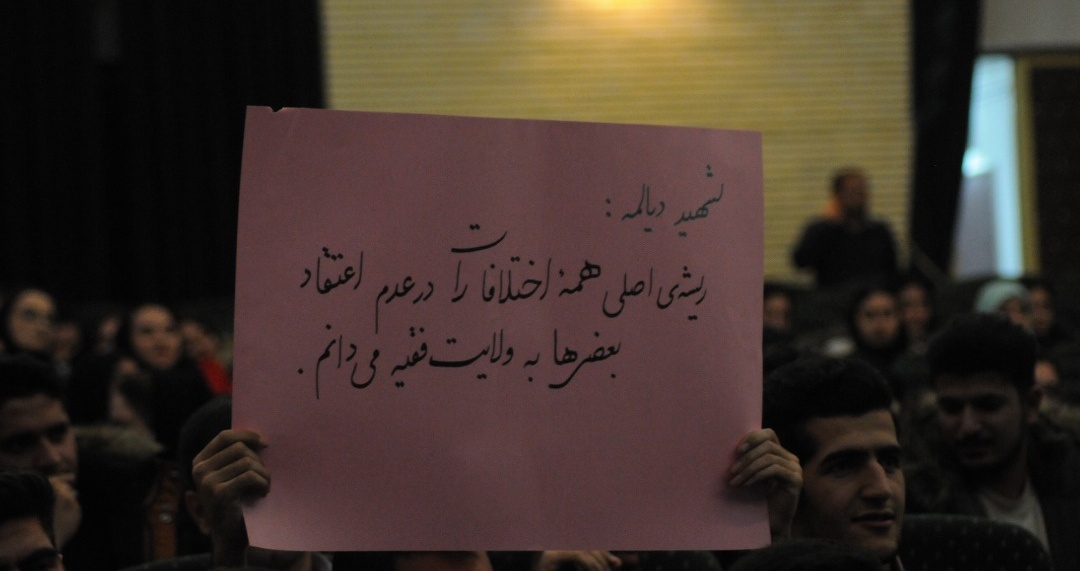 شهید دیالمه :
ریشه‌ی اصلی همهٔ اختلافات را در عدم اعتقاد
بعضی‌ها به ولایت فقیه می‌دانم .